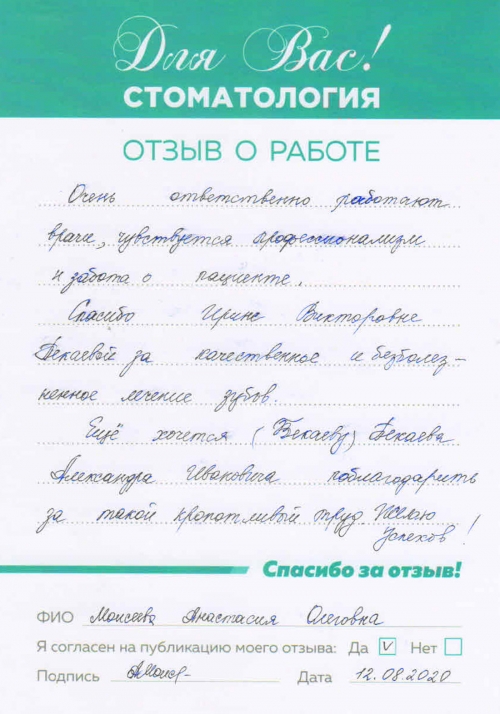 Для Вас!
СТОМАТОЛОГИЯ
ОТЗЫВ О РАБОТЕ
Очень ответственно работают
врачи, чувствуется профессионализм
и забота о пациенте.
Спасибо Ирине Викторовне
Бекаевой за качественное и безболез-
ненное лечение зубов.
Ещё хочется (Бекаеву) Бекаева
Александра Ивановича поблагодарить
за такой кропотливый труд Желаю
Успехов!
Спасибо за отзыв!
ФИО Моисеева Анастасия Олеговна
Я согласен на публикацию моего отзыва: Да V Нет
Подпись Дата 12.08.2020